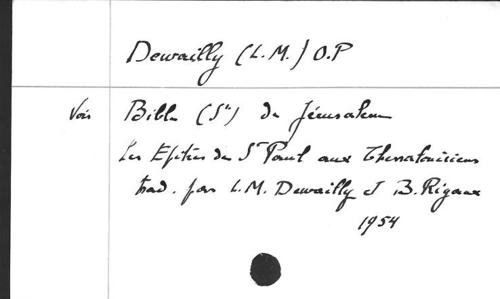 Dewailly (L.M.) O.P
Voir Bible (Ste) de Jérusalem
Les Epîtres de St Paul aux Thessaloniciens
trad. par L.M. Dewailly et B. Rigaux
1954